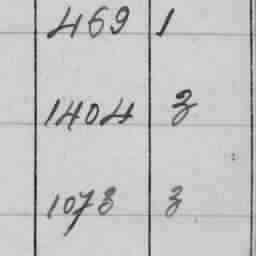 469 1
1404 3
1073 3